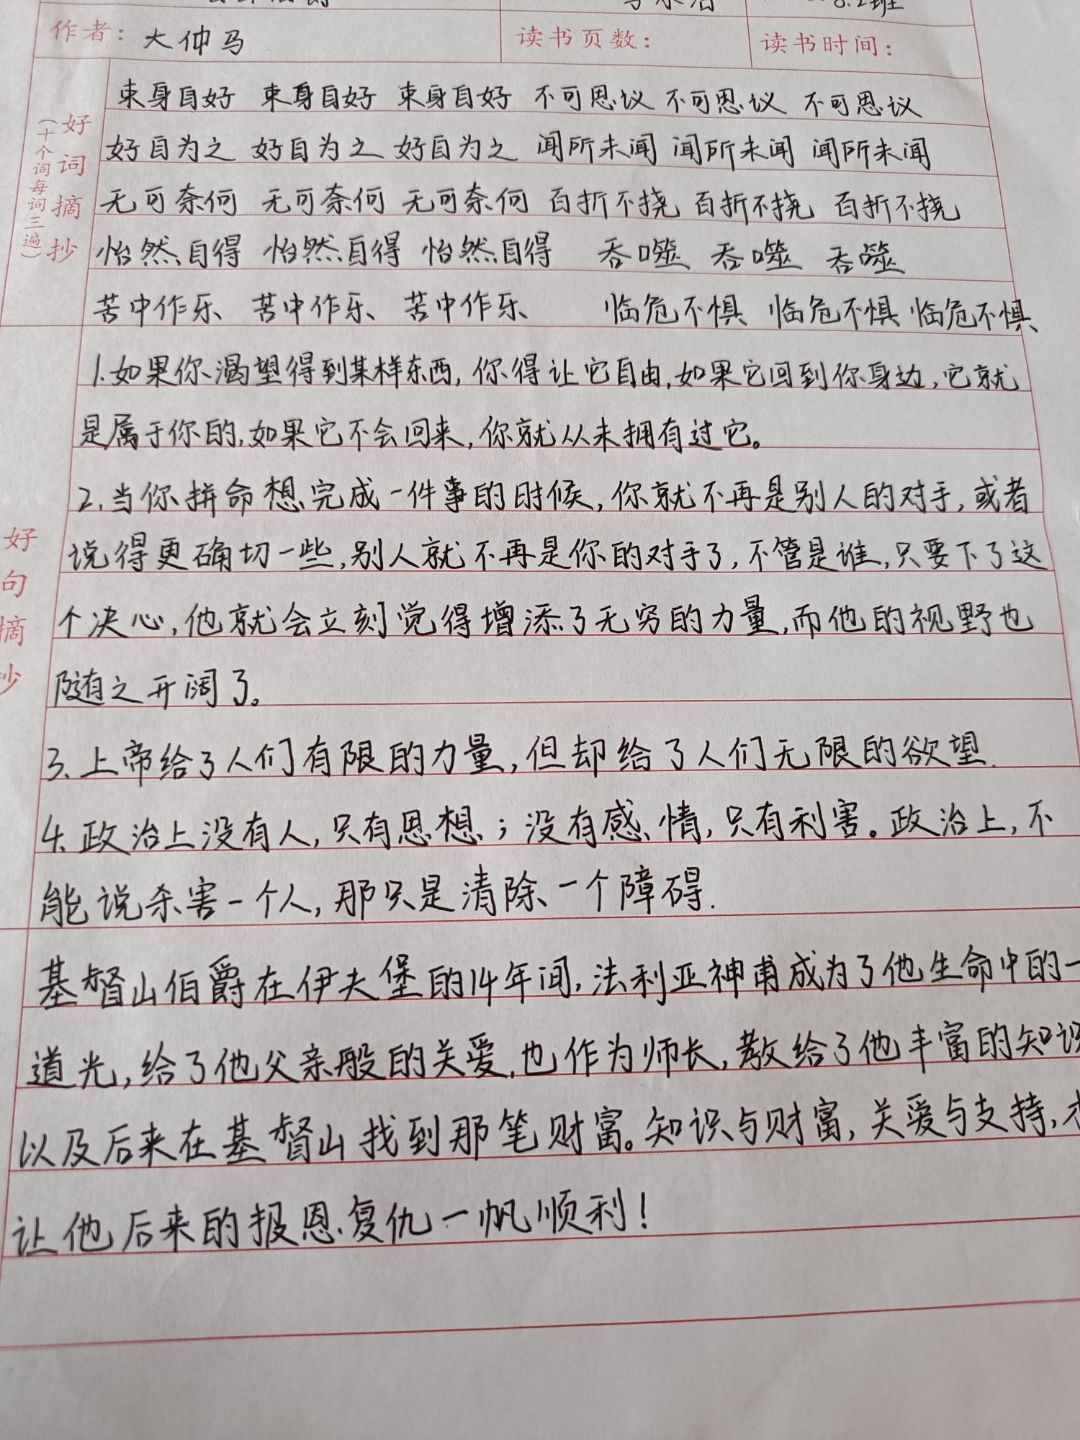 8.2班
作者：大仲马 读书页数： 读书时间：
好词摘抄
（十个词每词三遍）
束身自好 束身自好 束身自好 不可思议 不可思议 不可思议
好自为之 好自为之 好自为之 闻所未闻 闻所未闻 闻所未闻
无可奈何 无可奈何 无可奈何 百折不挠 百折不挠 百折不挠
怡然自得 怡然自得 怡然自得 吞噬 吞噬 吞噬
苦中作乐 苦中作乐 苦中作乐 临危不惧 临危不惧 临危不惧
好句摘抄
1.如果你渴望得到某样东西，你得让它自由，如果它回到你身边，它就
是属于你的，如果它不会回来，你就从未拥有过它。
2.当你拼命想完成一件事的时候，你就不再是别人的对手，或者
说得更确切一些，别人就不再是你的对手了，不管是谁，只要下了这
个决心，他就会立刻觉得增添了无穷的力量，而他的视野也
随之开阔了。
3.上帝给了人们有限的力量，但却给了人们无限的欲望.
4.政治上没有人，只有思想；没有感情，只有利害。政治上，不
能说杀害一个人，那只是清除一个障碍.
基督山伯爵在伊夫堡的14年间，法利亚神甫成为了他生命中的一
道光，给了他父亲般的关爱，也作为师长，教给了他丰富的知识
以及后来在基督山找到那笔财富。知识与财富，关爱与支持，
让他后来的报恩复仇一帆顺利！